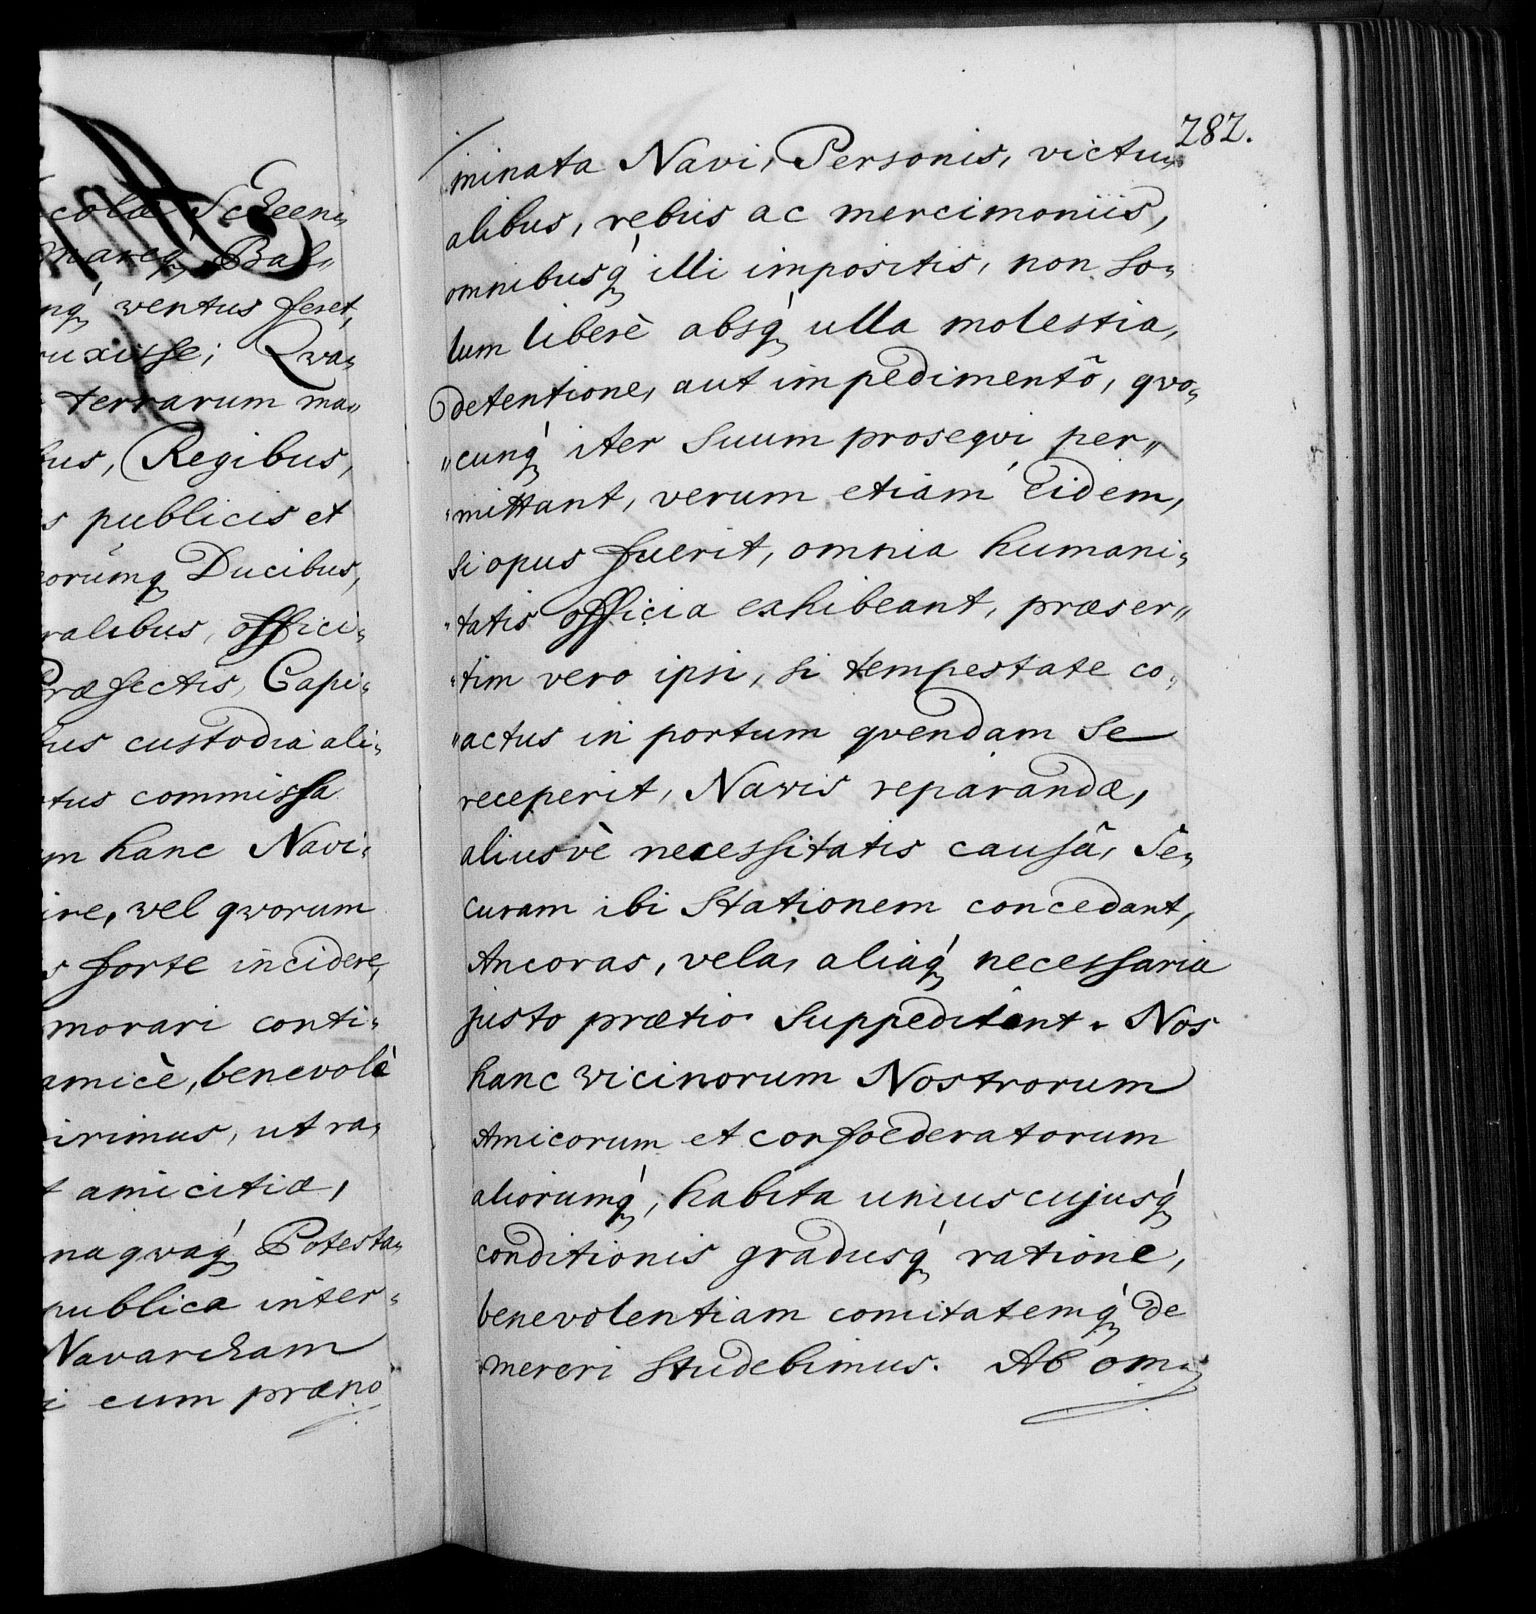 colæ Scheen„
Bal„
ventus feret,
Qva„
terrarum ma„
Regibus,
publicis et
Ducibus,
offici„
Præfectis, Capi„
custodia ali„
commissa
hanc Navi„
vel qvorum
forte incidere,
morari conti„
amicè, benevolè
ut ra„
amicitiæ,
Potesta„
publica inter„
Navarcham
cum præno
282.
minata Navi, Personis, victu„
alibus, rebus ac mercimoniis,
omnibusq́ illi impositis, non so„
lum liberè absq́ ulla molestia,
detentione, aut impedimentô, qvo„
„cunq́ iter suum proseqvi per„
„mittant, verum etiam eidem,
si opus fuerit, omnia humani„
„tatis officia exhibeant, præser„
„tim vero ipsi, si tempestate co„
„actus in portum qvendam se
receperit, Navis reparandæ,
aliusvè necessitatis causâ, Se„
curam ibi Stationem concedant,
Ancoras, vela, aliaq́ necessaria
justo prætio suppeditent. Nos
hanc vicinorum Nostrorum
Amicorum et confoederatorum
aliorumq́, habita uniuscujusq́
conditionis gradusq́ ratione,
benevolentiam comitatemq́ de
mereri studebimus. Ab om„